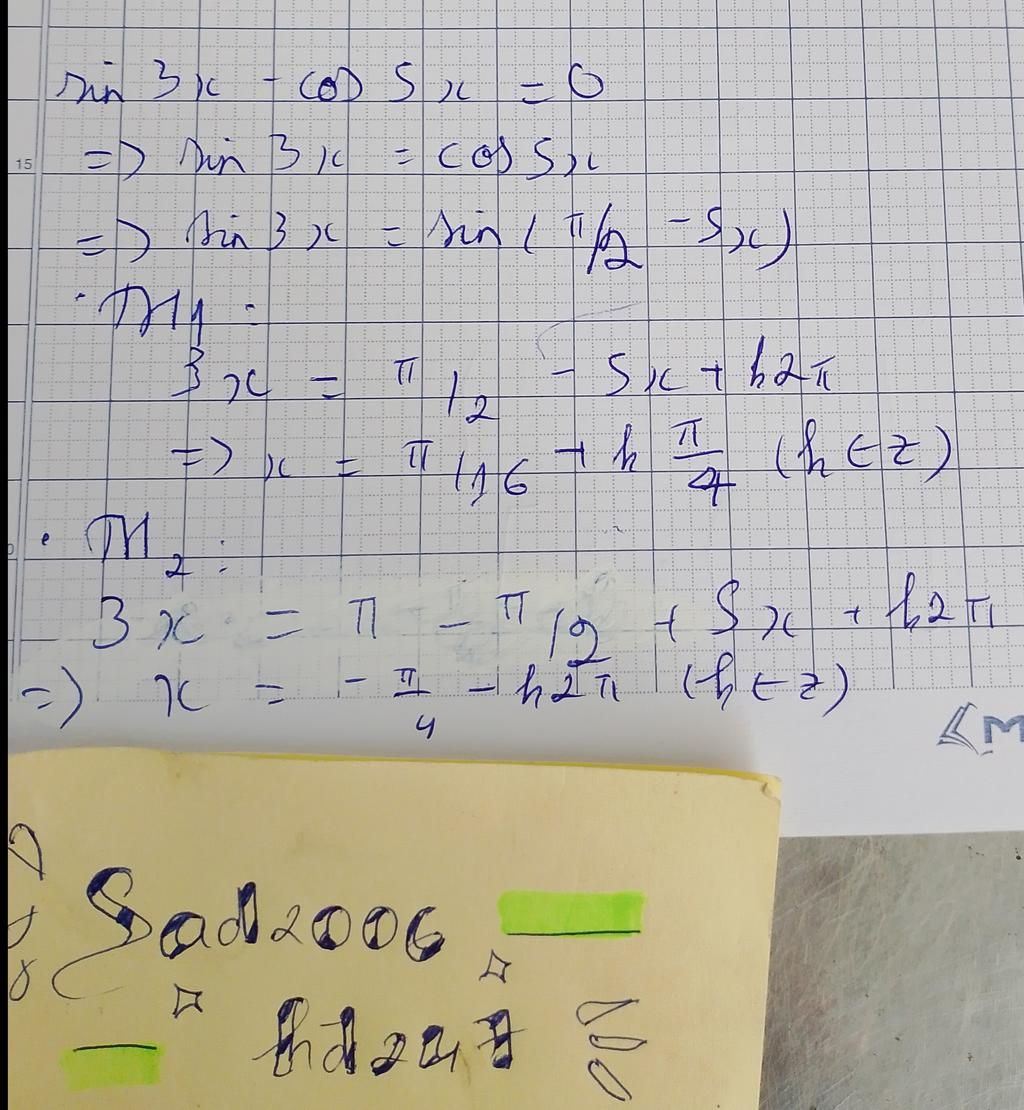 sin 3x - cos 5x = 0
15
=> sin 3x = cos 5x
=> sin 3x = sin (π/2 - 5x)
· TH1 :
3x = π/2 - 5x + k2π
=> x = π/16 + k π/4 (k ∈ z)
· TH2 :
3x = π - π/2 + 5x + k2π
=> x = - π/4 - k2π (k ∈ z)
M
Sad2006
hd247